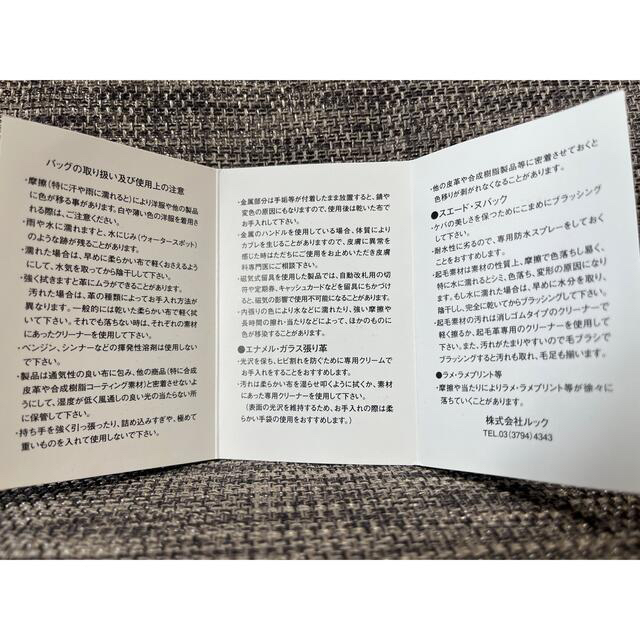 バッグの取り扱い及び使用上の注意
・摩擦(特に汗や雨に濡れると)により洋服や他の製品
に色が移る事があります。白や薄い色の洋服を着用さ
れる際は、ご注意ください。
・雨や水に濡れますと、水にじみ(ウォータースポット)
のような跡が残ることがあります。
・濡れた場合は、早めに柔らかい布で軽くおさえるよう
にして、水気を取ってから陰干しして下さい。
・強く拭きますと革にムラができることがあります。
汚れた場合は、革の種類によってお手入れ方法が
異なります。一般的には乾いた柔らかい布で軽く拭
いて下さい。それでも落ちない時は、それぞれの素材
にあったクリーナーで使用して下さい。
・ベンジン、シンナーなどの揮発性溶剤は使用しない
で下さい。
・製品は通気性の良い布に包み、他の商品(特に合成
皮革や合成樹脂コーティング素材)と密着させないよ
うにして、湿度が低く風通しの良い光の当たらない所
に保管して下さい。
・持ち手を強く引っ張ったり、詰め込みすぎや、極めて
重いものを入れて使用しないで下さい。
・金属部分は手垢等が付着したまま放置すると、錆や
変色の原因にもなりますので、使用後は乾いた布で
お手入れして下さい。
・金属のハンドルを使用している場合、体質により
カブレを生じることがありますので、皮膚に異常を
感じた時はただちにご使用をお止めいただき皮膚
科専門医にご相談下さい。
・磁気式留具を使用した製品では、自動改札用の切
符や定期券、キャッシュカードなどを留具にちかづけ
ると、磁気の影響で使用不可能になることがあります。
・内張りの色により水などに濡れたり、強い摩擦や
長時間の擦れ・当たりなどによって、ほかのものに
色が移染することがあります。
●エナメル・ガラス張り革
・光沢を保ち、ヒビ割れを防ぐために専用クリームで
お手入れすることをおすすめします。
・汚れは柔らかい布を湿らせ叩くように拭くか、素材
にあった専用クリーナーを使用して下さい。
(表面の光沢を維持するため、お手入れの際は柔
らかい手袋の使用をおすすめします。)
・他の皮革や合成樹脂製品等に密着させておくと
色移りが剥がれなくなることがあります。
●スエード・ヌバック
・ケバの美しさを保つためにこまめにブラッシング
して下さい。
・耐水性に劣るので、専用防水スプレーをしておく
ことをおすすめします。
・起毛素材は素材の性質上、摩擦で色落ちし易く、
特に水に濡れるとシミ、色落ち、変形の原因になり
ます。もし水に濡れた場合は、早めに水分を取り、
陰干し、完全に乾いてからブラッシングして下さい。
・起毛素材の汚れは消しゴムタイプのクリーナーで
軽く擦るか、起毛革専用のクリーナーを使用して
下さい。また、汚れがたまりやすいので毛ブラシで
ブラッシングすると汚れも取れ、毛足も揃います。
●ラメ・ラメプリント等
・摩擦や当たりによりラメ・ラメプリント等が徐々に
落ちていくことがあります。
株式会社ルック
TEL.03(3794)4343